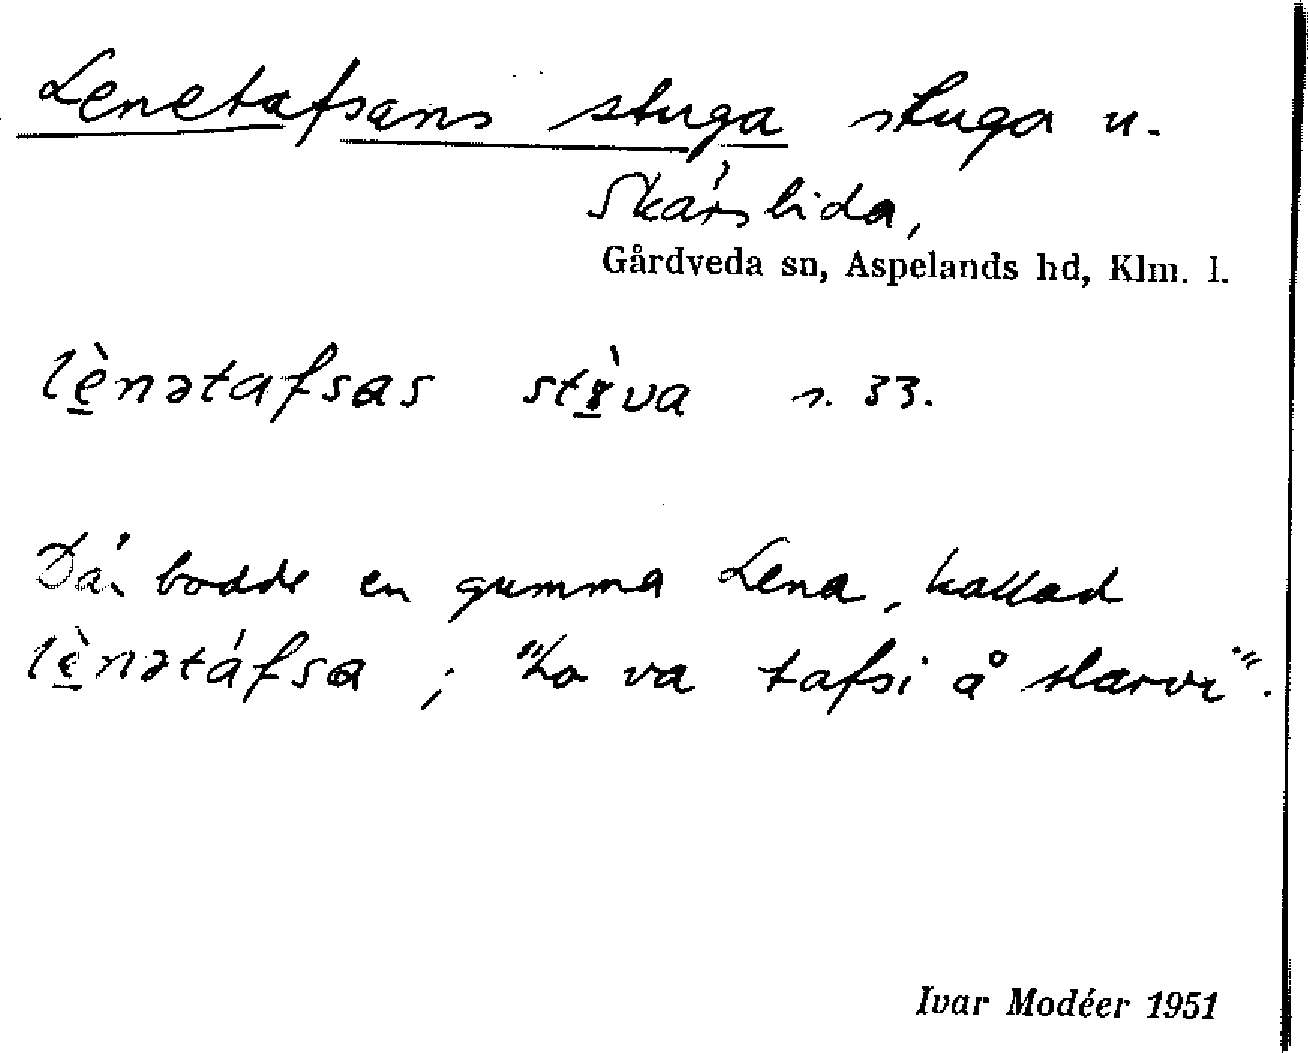 Lenetafsans stuga stuga u.
Skärslida,
Gårdveda sn, Aspelands hd, Klm. l.
lènətafsas stɤ̀va s. 33.
Där bodde en gumma Lena, kallad
lènətáfsa ; "ho va tafsi å slarvi".
Ivar Modéer 1951